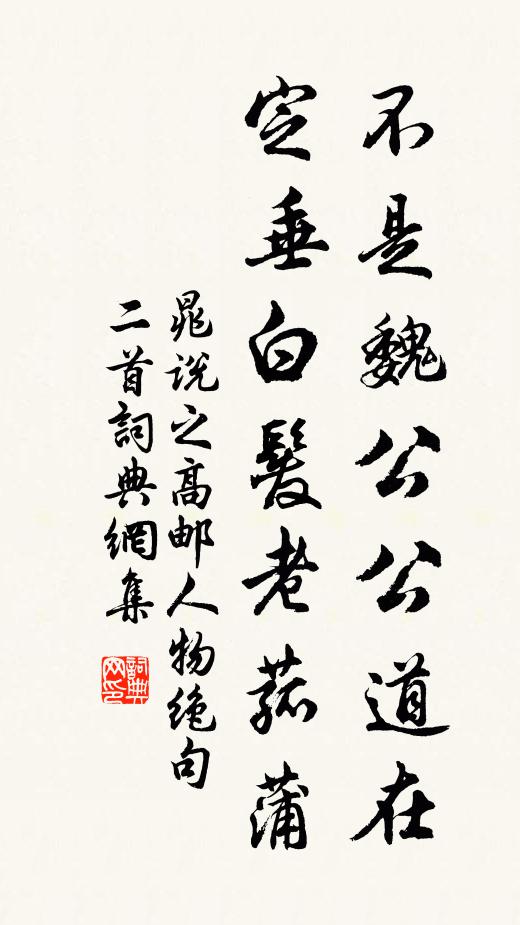 不是魏公公道在
定垂白髮老菰蒲
晁説之高邮人物绝句
二首詞典網集
詞典網印